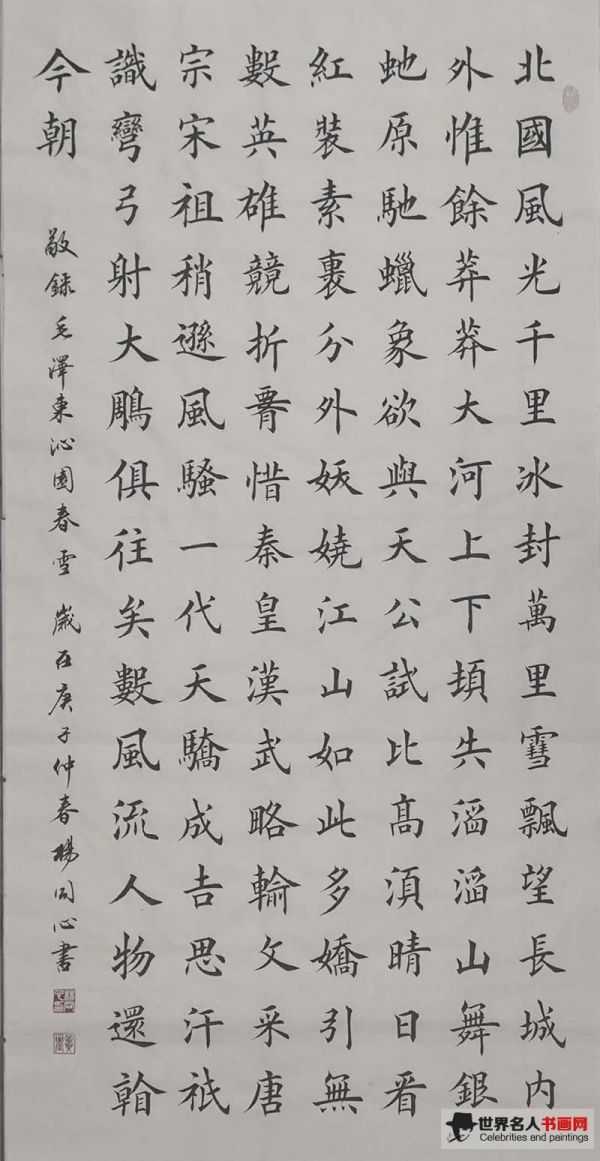 北國風光千里冰封萬里雪飄望長城内
外惟餘莽莽大河上下頓失滔滔山舞銀
虵原馳蠟象欲與天公試比高湏晴日看
紅裝素裹分外妖嬈江山如此多嬌引無
數英雄競折霄惜秦皇漢武略輸文采唐
宗宋祖稍遜風騷一代天驕成吉思汗祗
識彎弓射大鵰俱往矣數風流人物還看
今朝
敬録毛澤東沁園春雪 歲在庚子仲春楊同心書
世界名人书画网
Celebrities and paintings